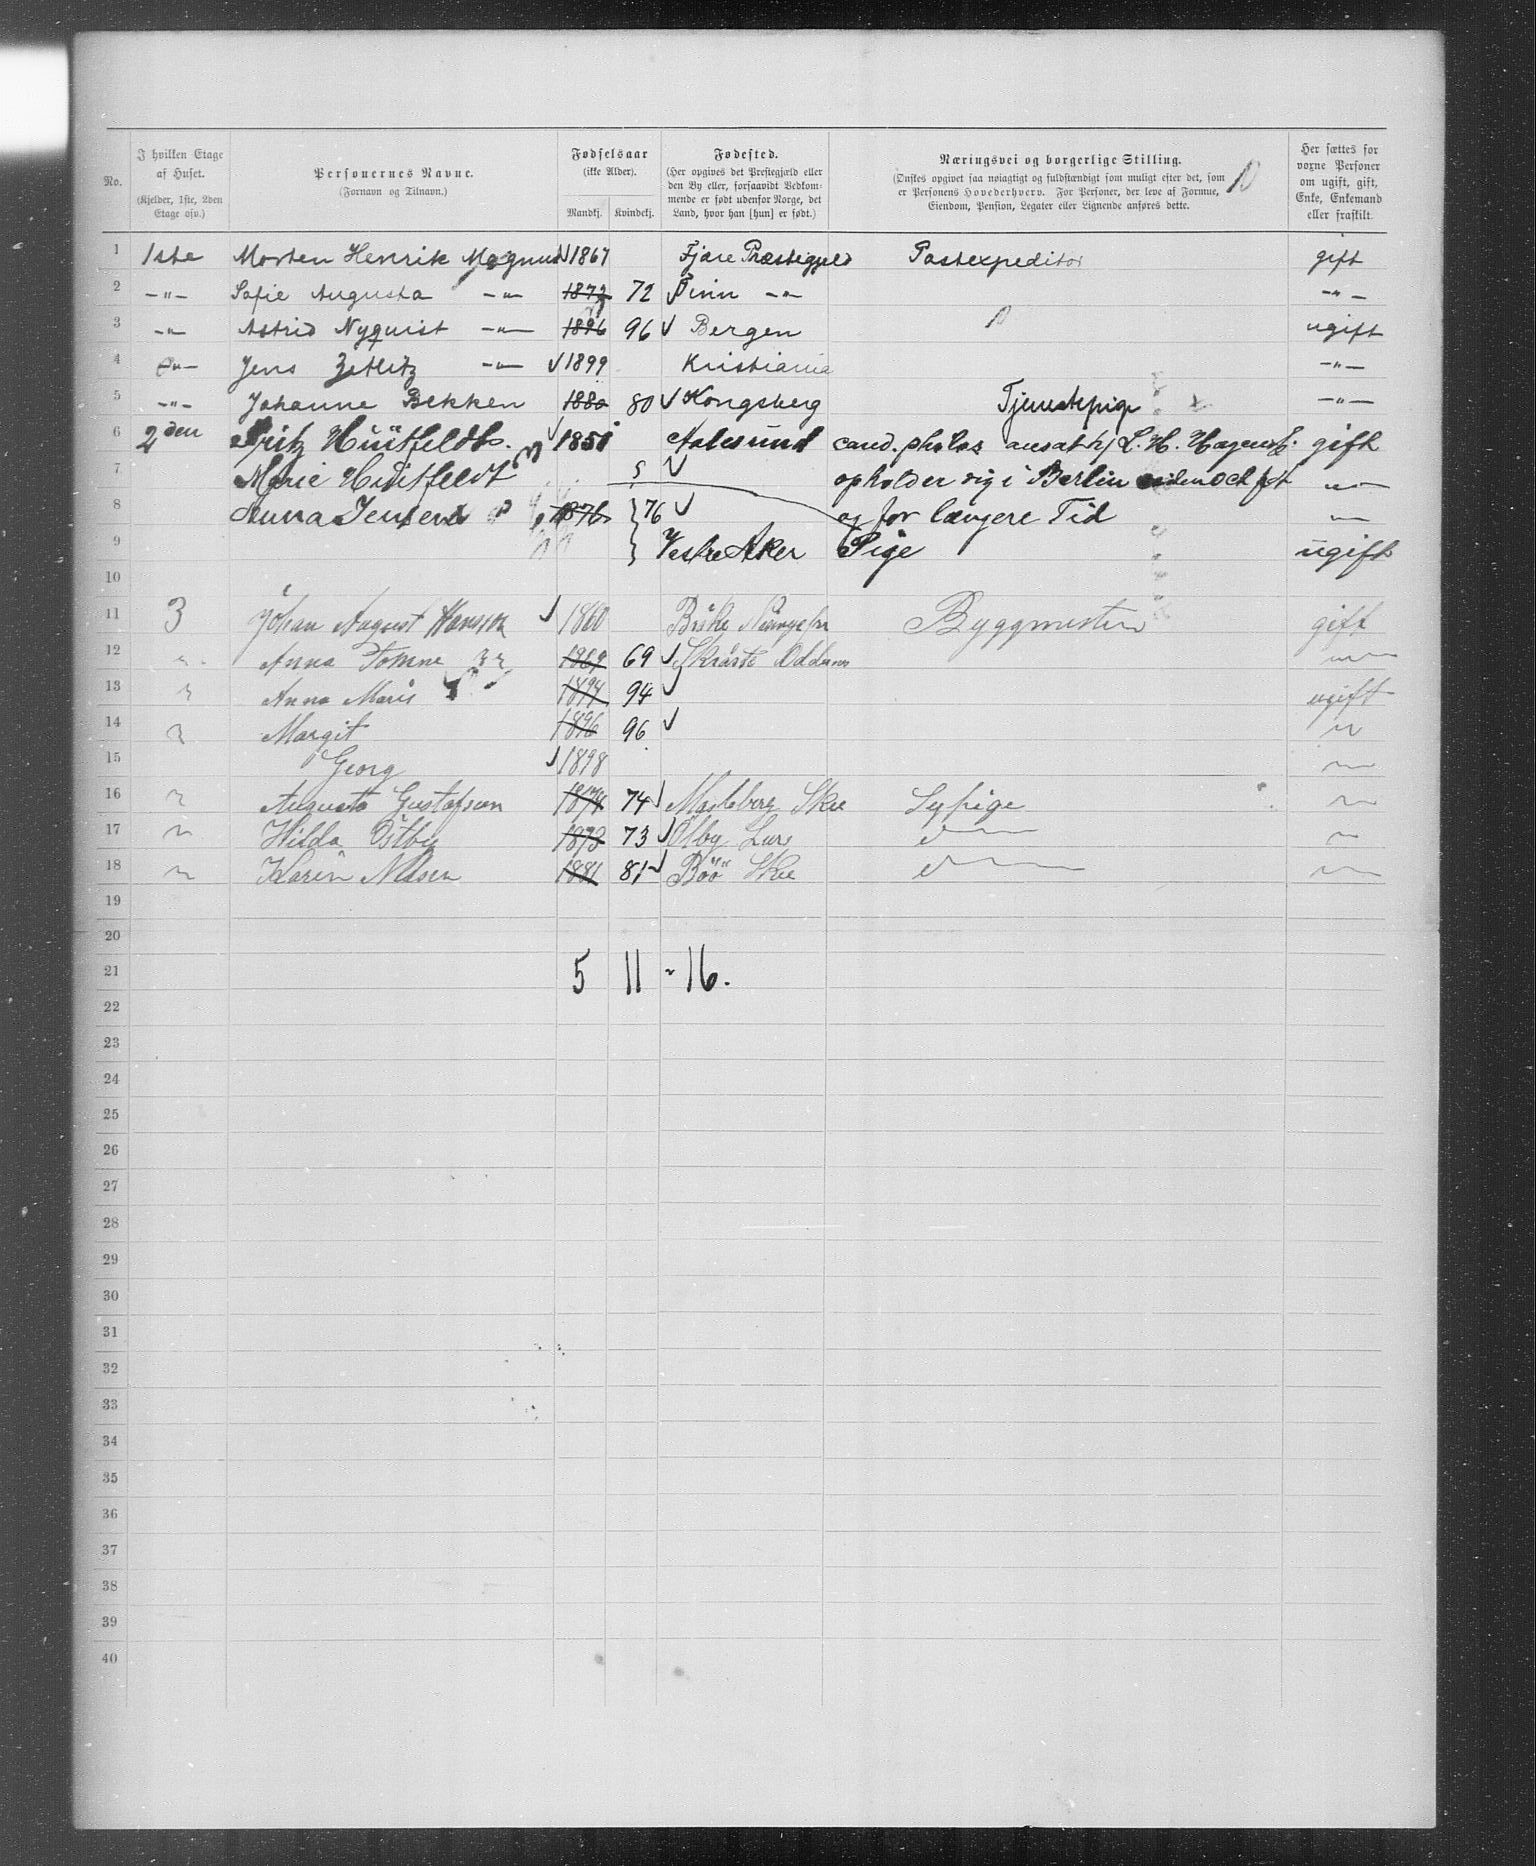 No. I hvilken Etage af Huset. (Kjelder, 1ste, 2den Etage osv.) Personernes Navne. (Fornavn og Tilnavn.) Fødselsaar (ikke Alder). Mandkj. Kvindekj. Fødested. (Her opgives det Prestegjæld eller den By eller, forsaavidt Vedkommende er født udenfor Norge, det Land, hvor han [hun] er født.) Næringsvei og borgerlige Stilling. (Ønskes opgivet saa nøiagtigt og fuldstændigt som muligt efter det, som er Personens Hovederhverv. For Personer, der leve af Formue, Eiendom, Pension, Legater eller Lignende anføres dette.) Her sættes for voxne Personer om ugift, gift, Enke, Enkemand eller fraskilt.
1 1ste Morten Henrik Magnus 1867 Fjære Præstegjeld Postexpeditør gift
2 -"- Sofie Augusta -"- 1872 72 -"- -"-
3 -"- Astrid Nyquist -"- 1896 96 Bergen ugift
4 -"- Jens Zetlitz -"- 1899 Kristiania -"-
5 -"- Johanne Bekken 1880 80 Kongsberg Tjenestepige -"-
6 2den Fritz Huitfeldt 1851 Aalesund cand. philos ansat H. gift
7 Marie Huitfeldt opholder sig i Berlin siden Oct -"-
8 Anna Jensen 1876 76 og for længere Tid -"-
9 Vestre Aker Pige ugift
10
11 3 Johan August Hansson 1860 Byggmester gift
12 Anna 1869 69
13 Anna Maria 1894 94 ugift
14 Margit 1896 96
15 Georg 1898
16 Augusta Gustafson 1874 74 Sypige
17 Hilda Östby 1873 73 Ölby
18 Karin Nilsen 1881 81
19
20
21 5 11 - 16.
22
23
24
25
26
27
28
29
30
31
32
33
34
35
36
37
38
39
40